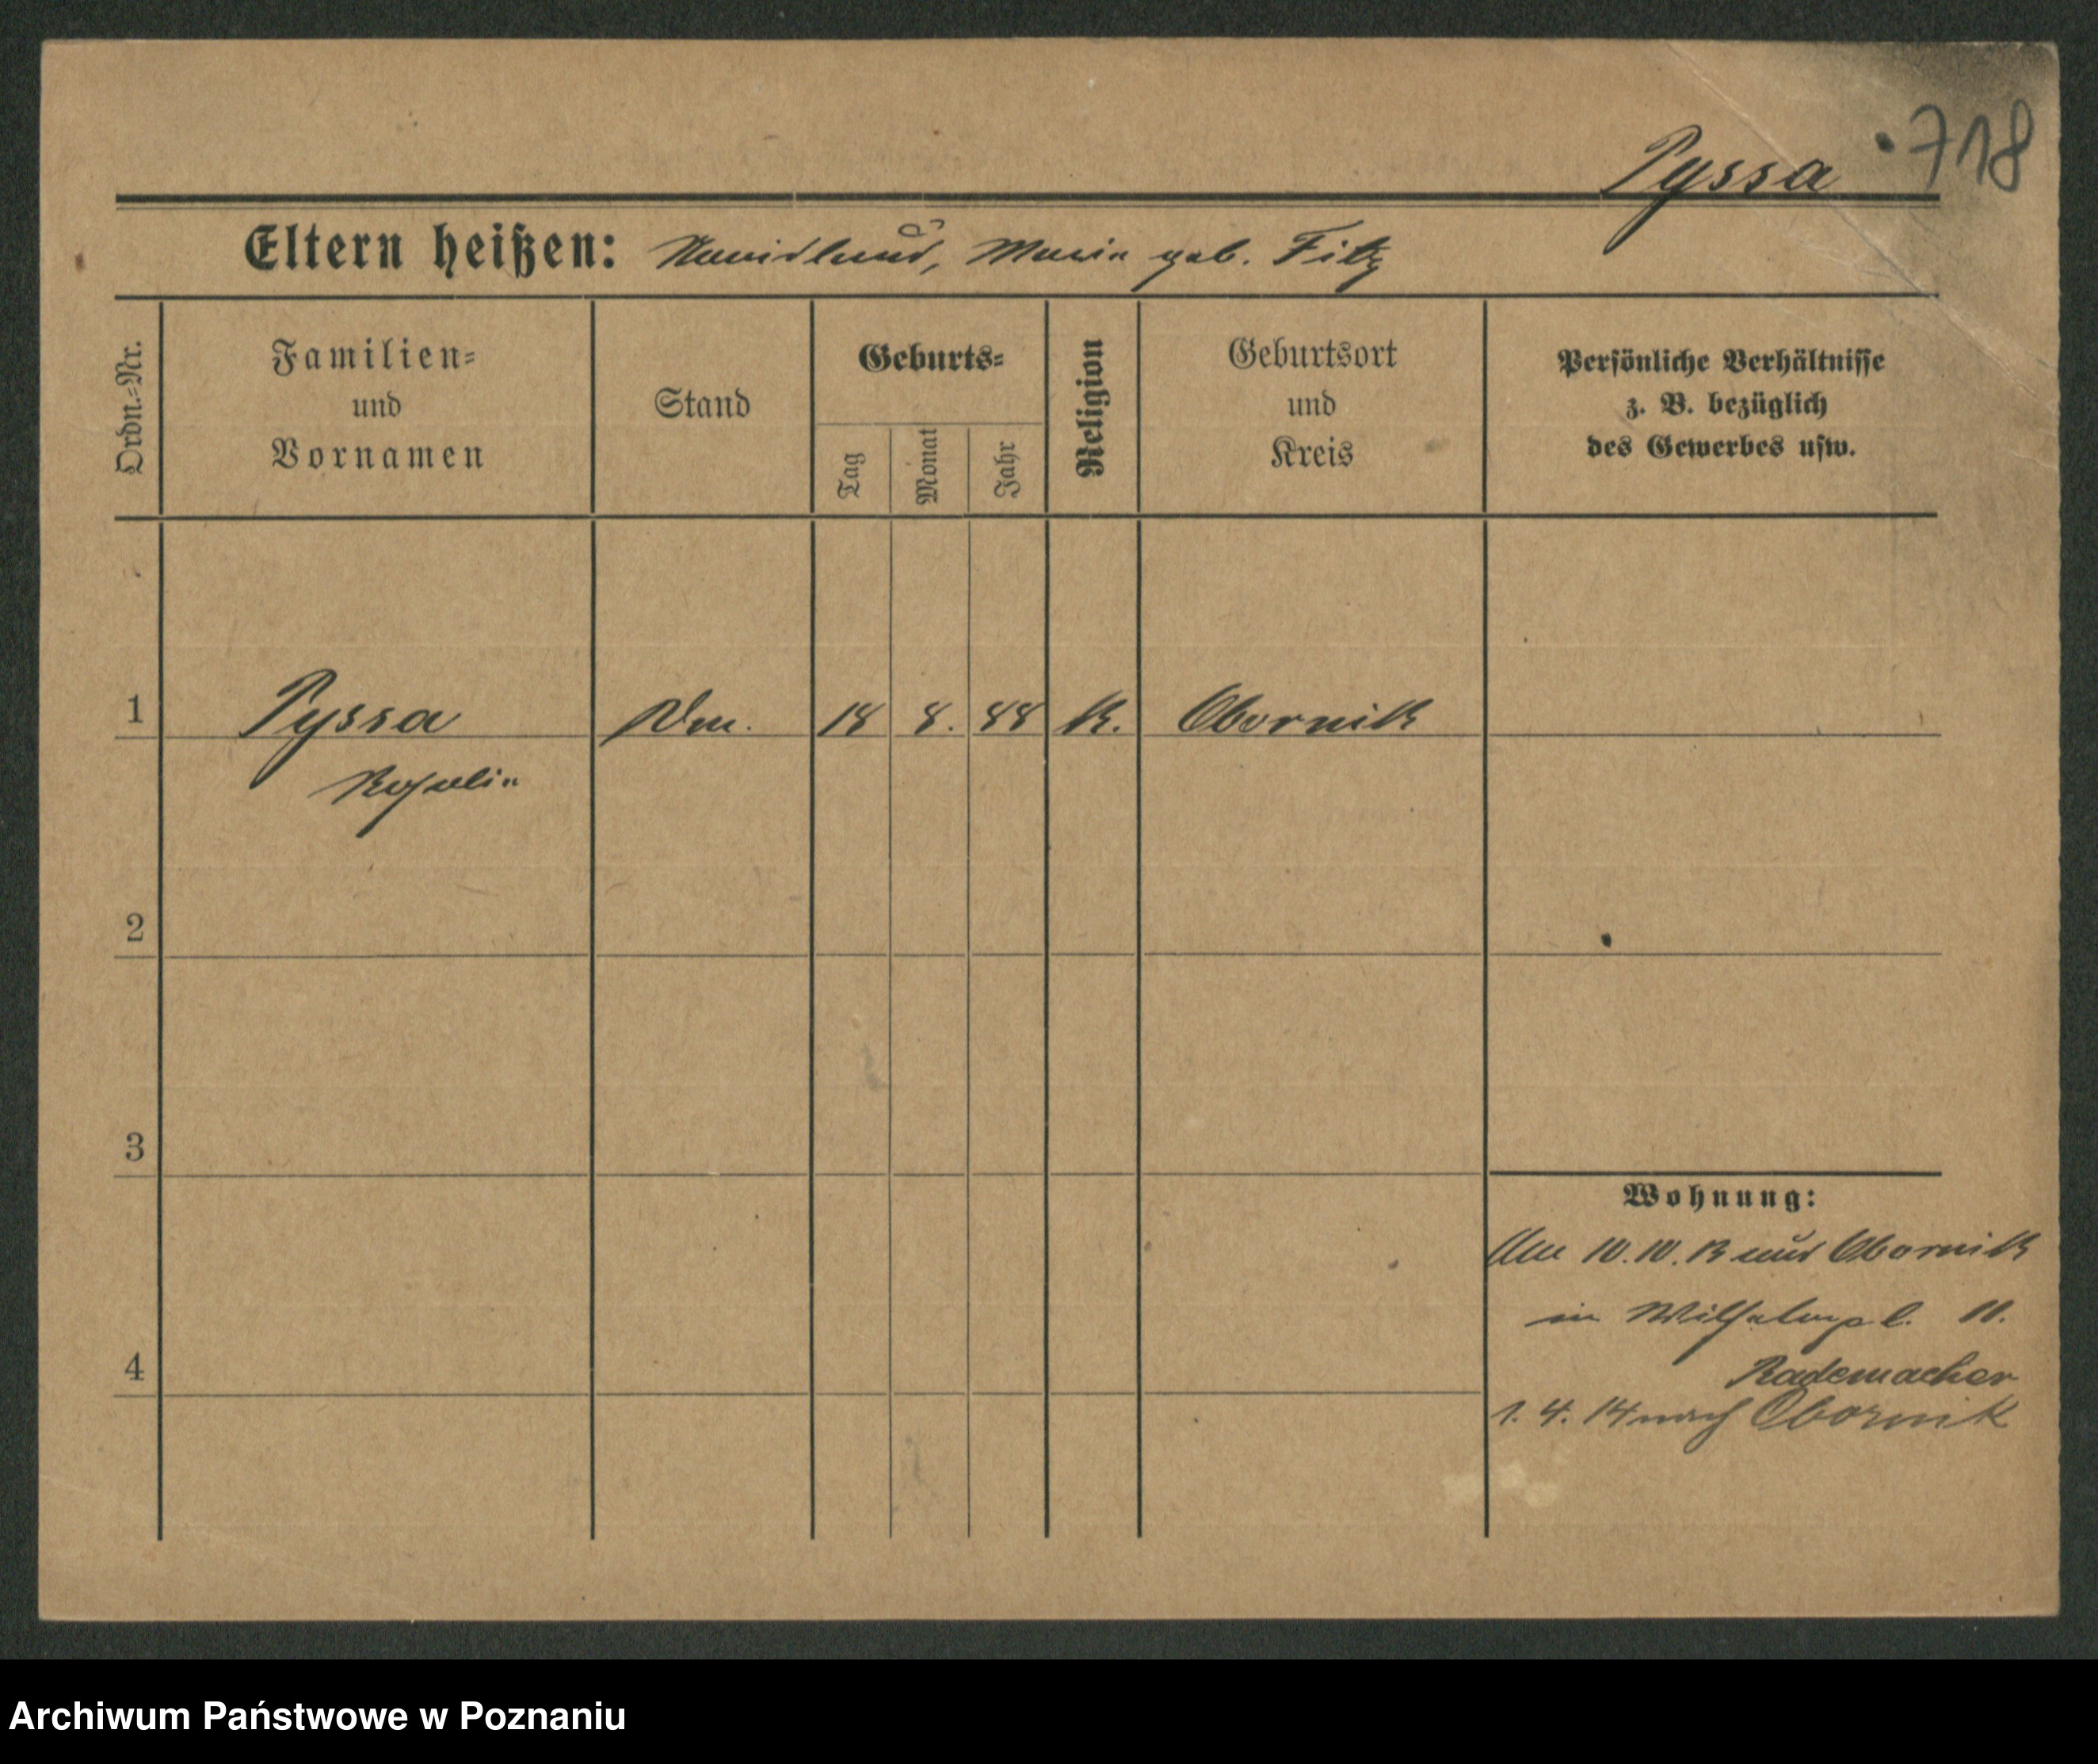 718
Pyssa
Eltern heißen: Maria geb. Filz
Ordn.-Nr.
Familien-
und
Vornamen
Stand
Geburts-
Tag
Monat
Jahr
Religion
Geburtsort
und
Kreis
Persönliche Verhältnisse
z. B. bezüglich
des Gewerbes usw.
1 Pyssa 18 8. 88 K. Obornik
Rosalia
2
3
4
Wohnung:
Am 10. 10. 13 aus Obornik
in Wilhelmspl. 11.
Rademacher
1. 4. 14 nach Obornik
Archiwum Państwowe w Poznaniu